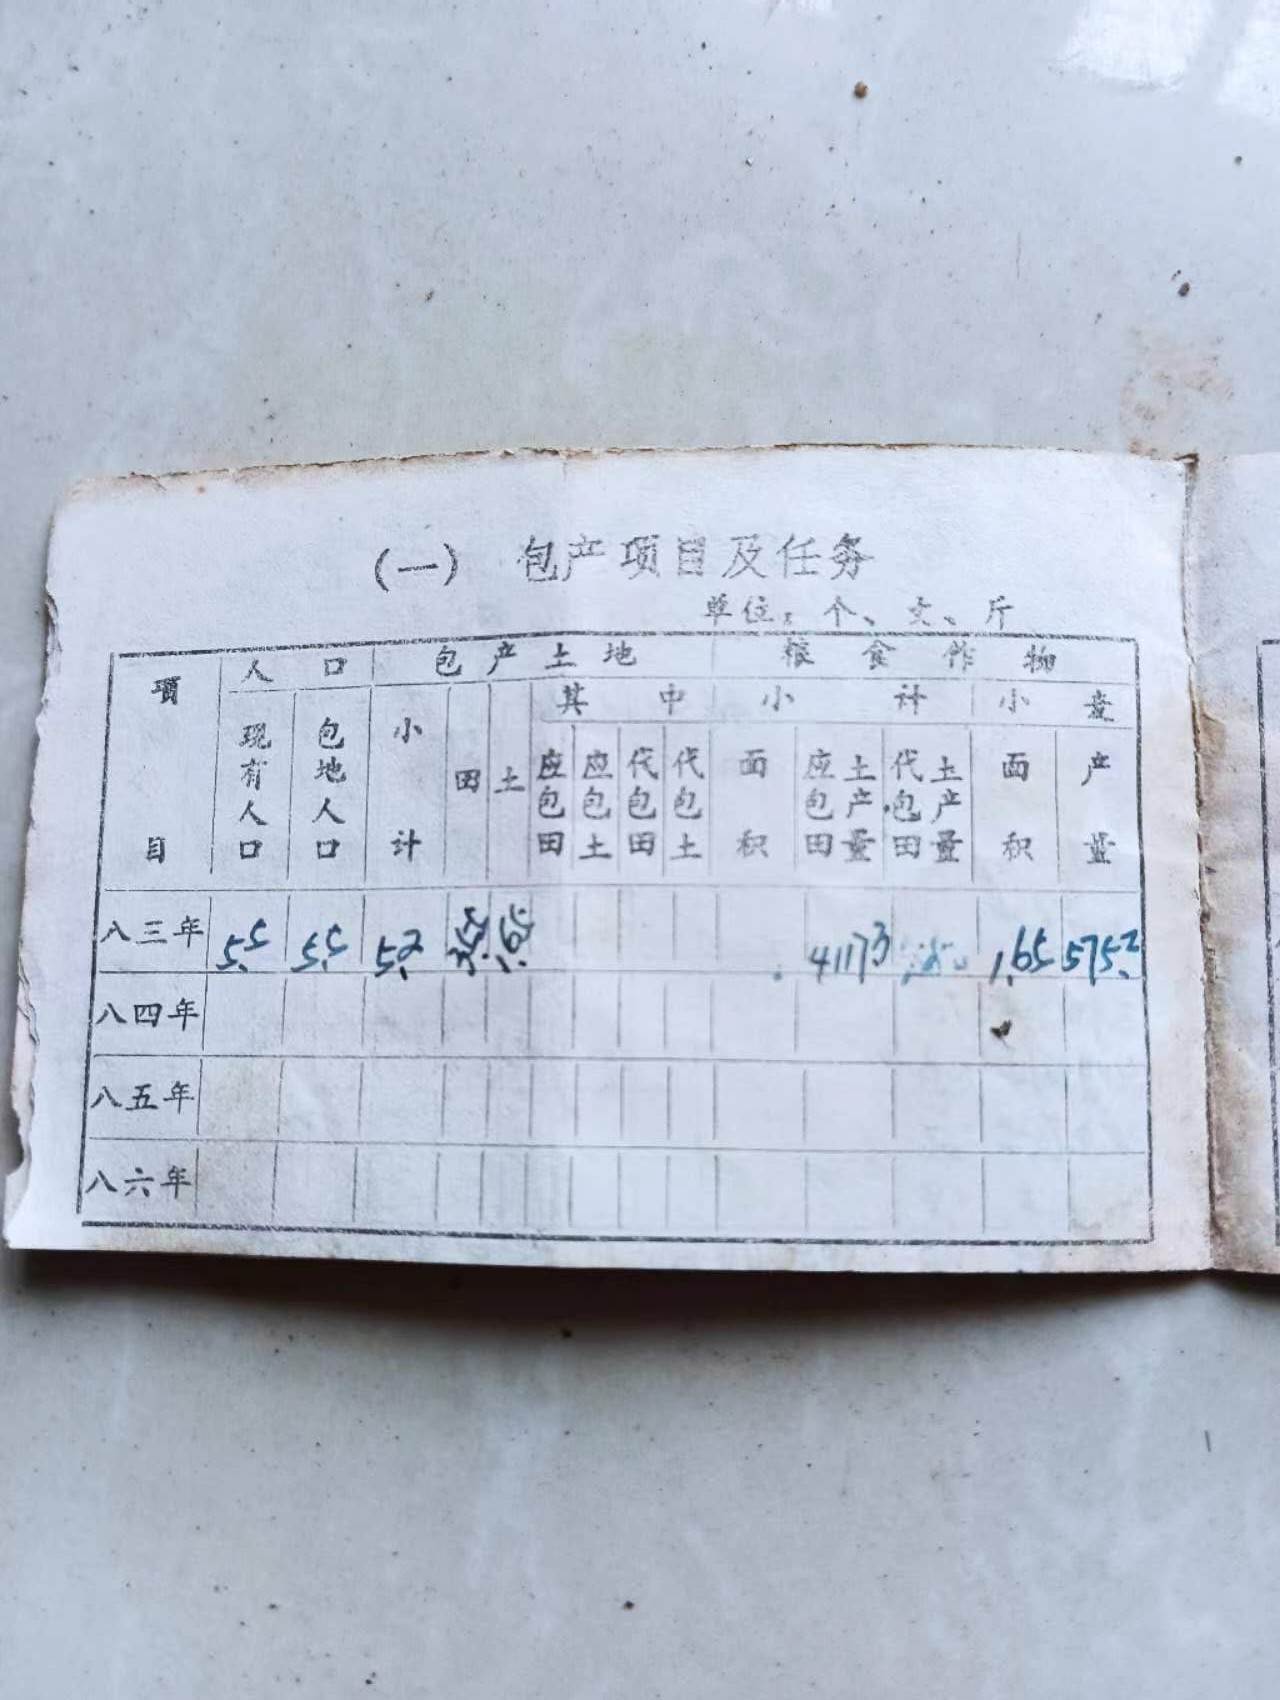 (一) 包产项目及任务
单位：个、丈、斤
項目 人口 包产土地 粮食作物
其中 小计 小麦
现有人口 包地人口 小计 田 土 应包田 应包土 代包田 代包土 面积 应包田土产量 代包田土产量 面积 产量
八三年 5.5 5.5 5.2 1.65 41173 1.65 575.2
八四年
八五年
八六年